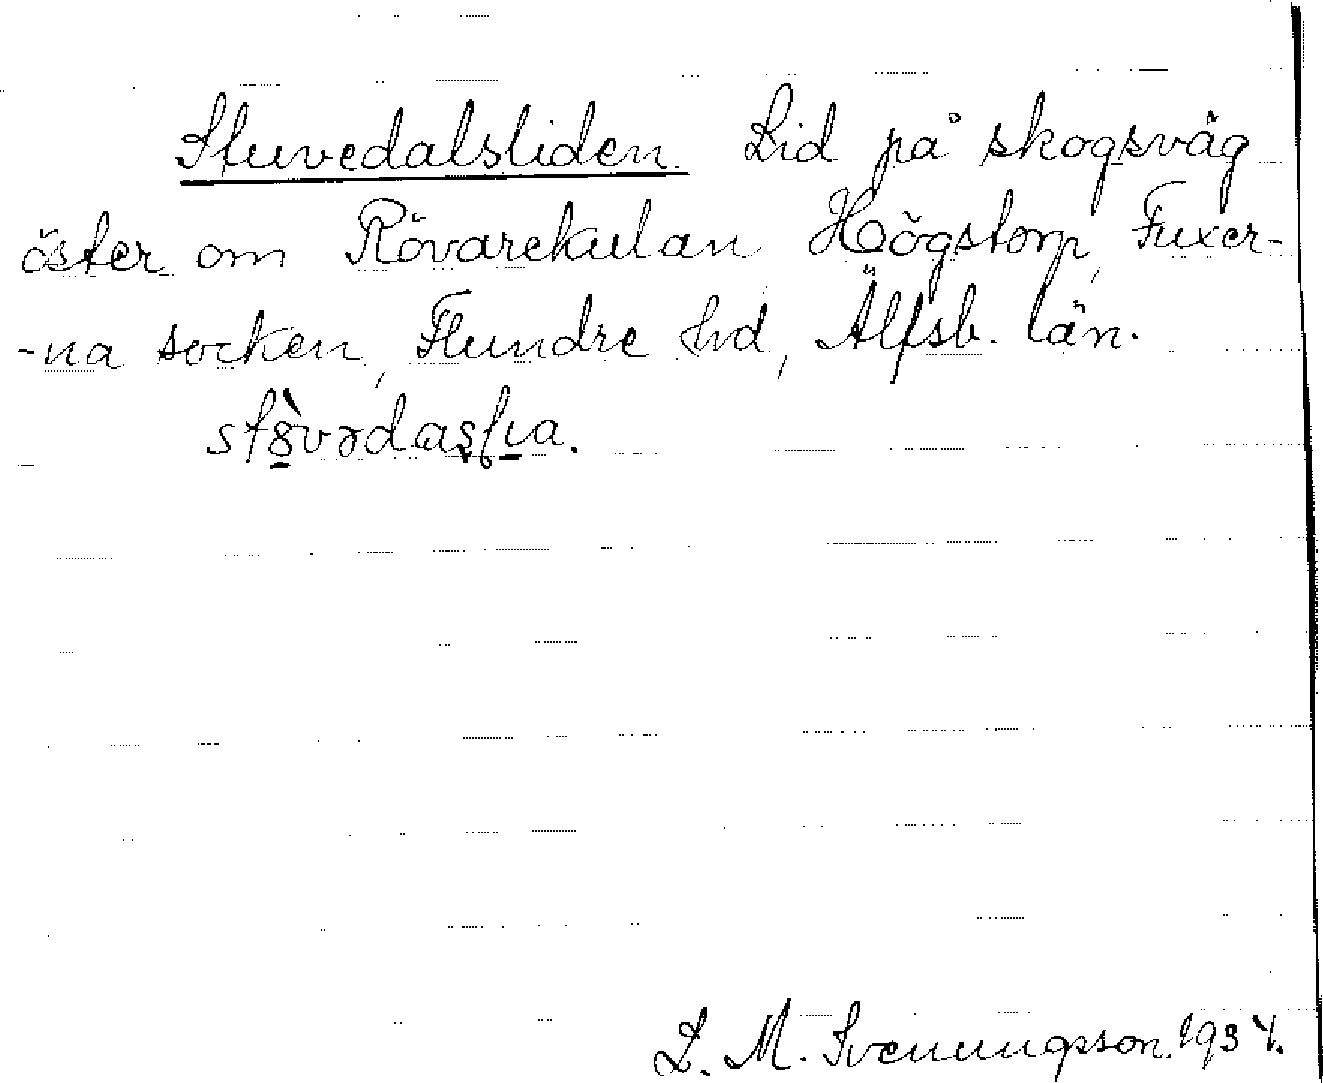 Stuvedalsliden. Lid på skogsväg
öster om Rövarekulan Högstorp, Fuxer-
-na socken, Flundre hd, Älfsb. län.
L. M. Svenungsson. 1934.